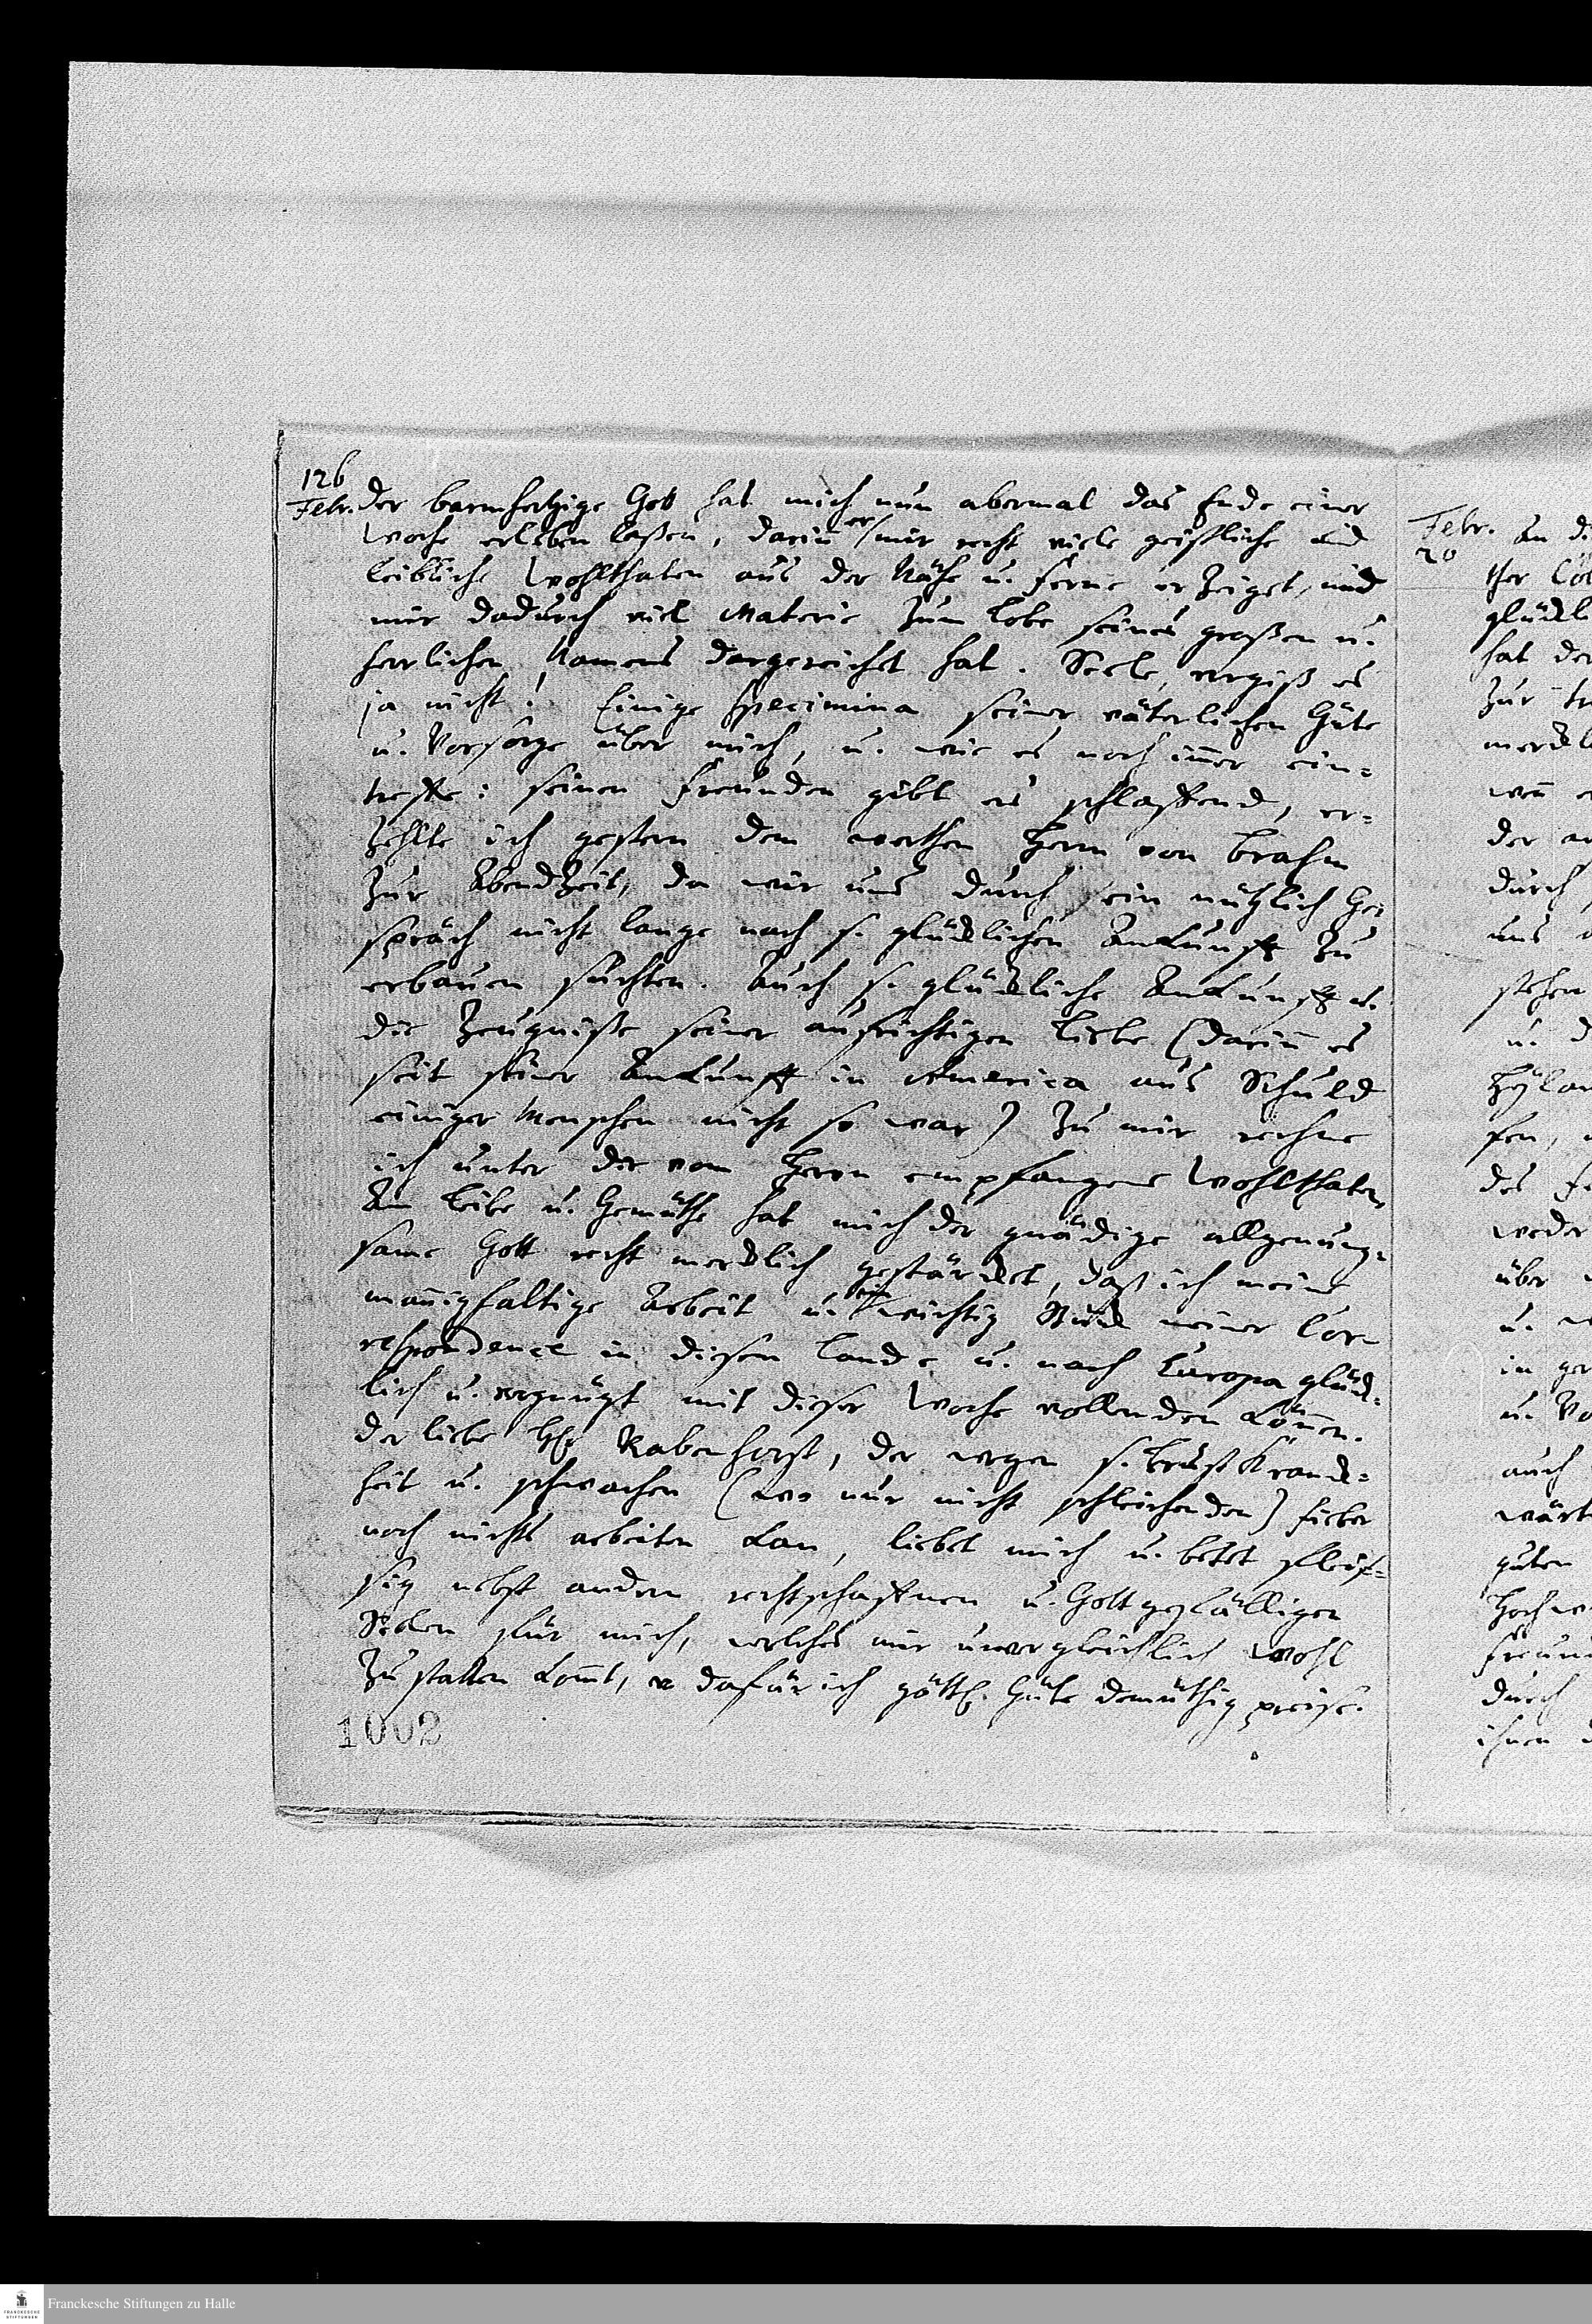 126
Febr. Der barmhertzige Gott hat mich nun abermal das Ende einer
Woche erleben laßen, darin er mir recht viele geistliche und
leibliche Wohlthaten aus der Nähe u. Ferne erzeiget, und
mir dadurch viel Materie zum Lobe seines großen u.
herrlichen Namens dargereichet hat. Seele, vergiß es
ja nicht! Einige specimina seiner väterlichen Güte
u. Vorsorge über mich, u. wie es noch immer ein=
treffe: seinen Freunden gibt ers schlaffend, er=
zehlte ich gestern dem werthen Herrn von Brahm
zur Abendzeit, da wir uns durch ein nützlich Ge=
spräch nicht lange nach s. glücklichen Ankunfft zu
erbauen suchten. Auch s. glückliche Ankunfft u.
die Zeugniße seiner aufrichtigen Liebe (darin es
seit seiner Ankunfft in America aus Schuld
einiger Menschen nicht so war) zu mir rechne
ich unter die vom Herrn empfangene Wohlthaten.
Am Leibe u. Gemüthe hat mich der gnädige allgenug=
same Gott recht mercklich gestärcket, daß ich meine
mannigfaltige Arbeit u. ein wichtig Stück meiner Cor=
respondence in diesem Lande u. nach Europa glück=
lich u. vergnügt mit dieser Woche vollenden können.
Der liebe Hr Rabenhorst, der wegen s. Brust Kranck=
heit u. schwachen (wo nur nicht schleichenden) Fieber
noch nichts arbeiten kan, liebet mich u. betet fleis=
sig nebst andern rechtschaffenen u. Gott gefälligen
Seelen für mich, welches mir unvergleichlich wohl
zu statten komt, u dafür ich göttl. Güte demüthig preise.
1002
Febr. An di
20
ther
glückli
hat der
zur
merckl
wen
der
durch
uns
stehen
u. d
Heylan
sen,
des
weder
über
u.
in
u. Vo
auch
wärt
guten
Hochw
Freun
durch
ihnen d
Franckesche Stiftungen zu Halle